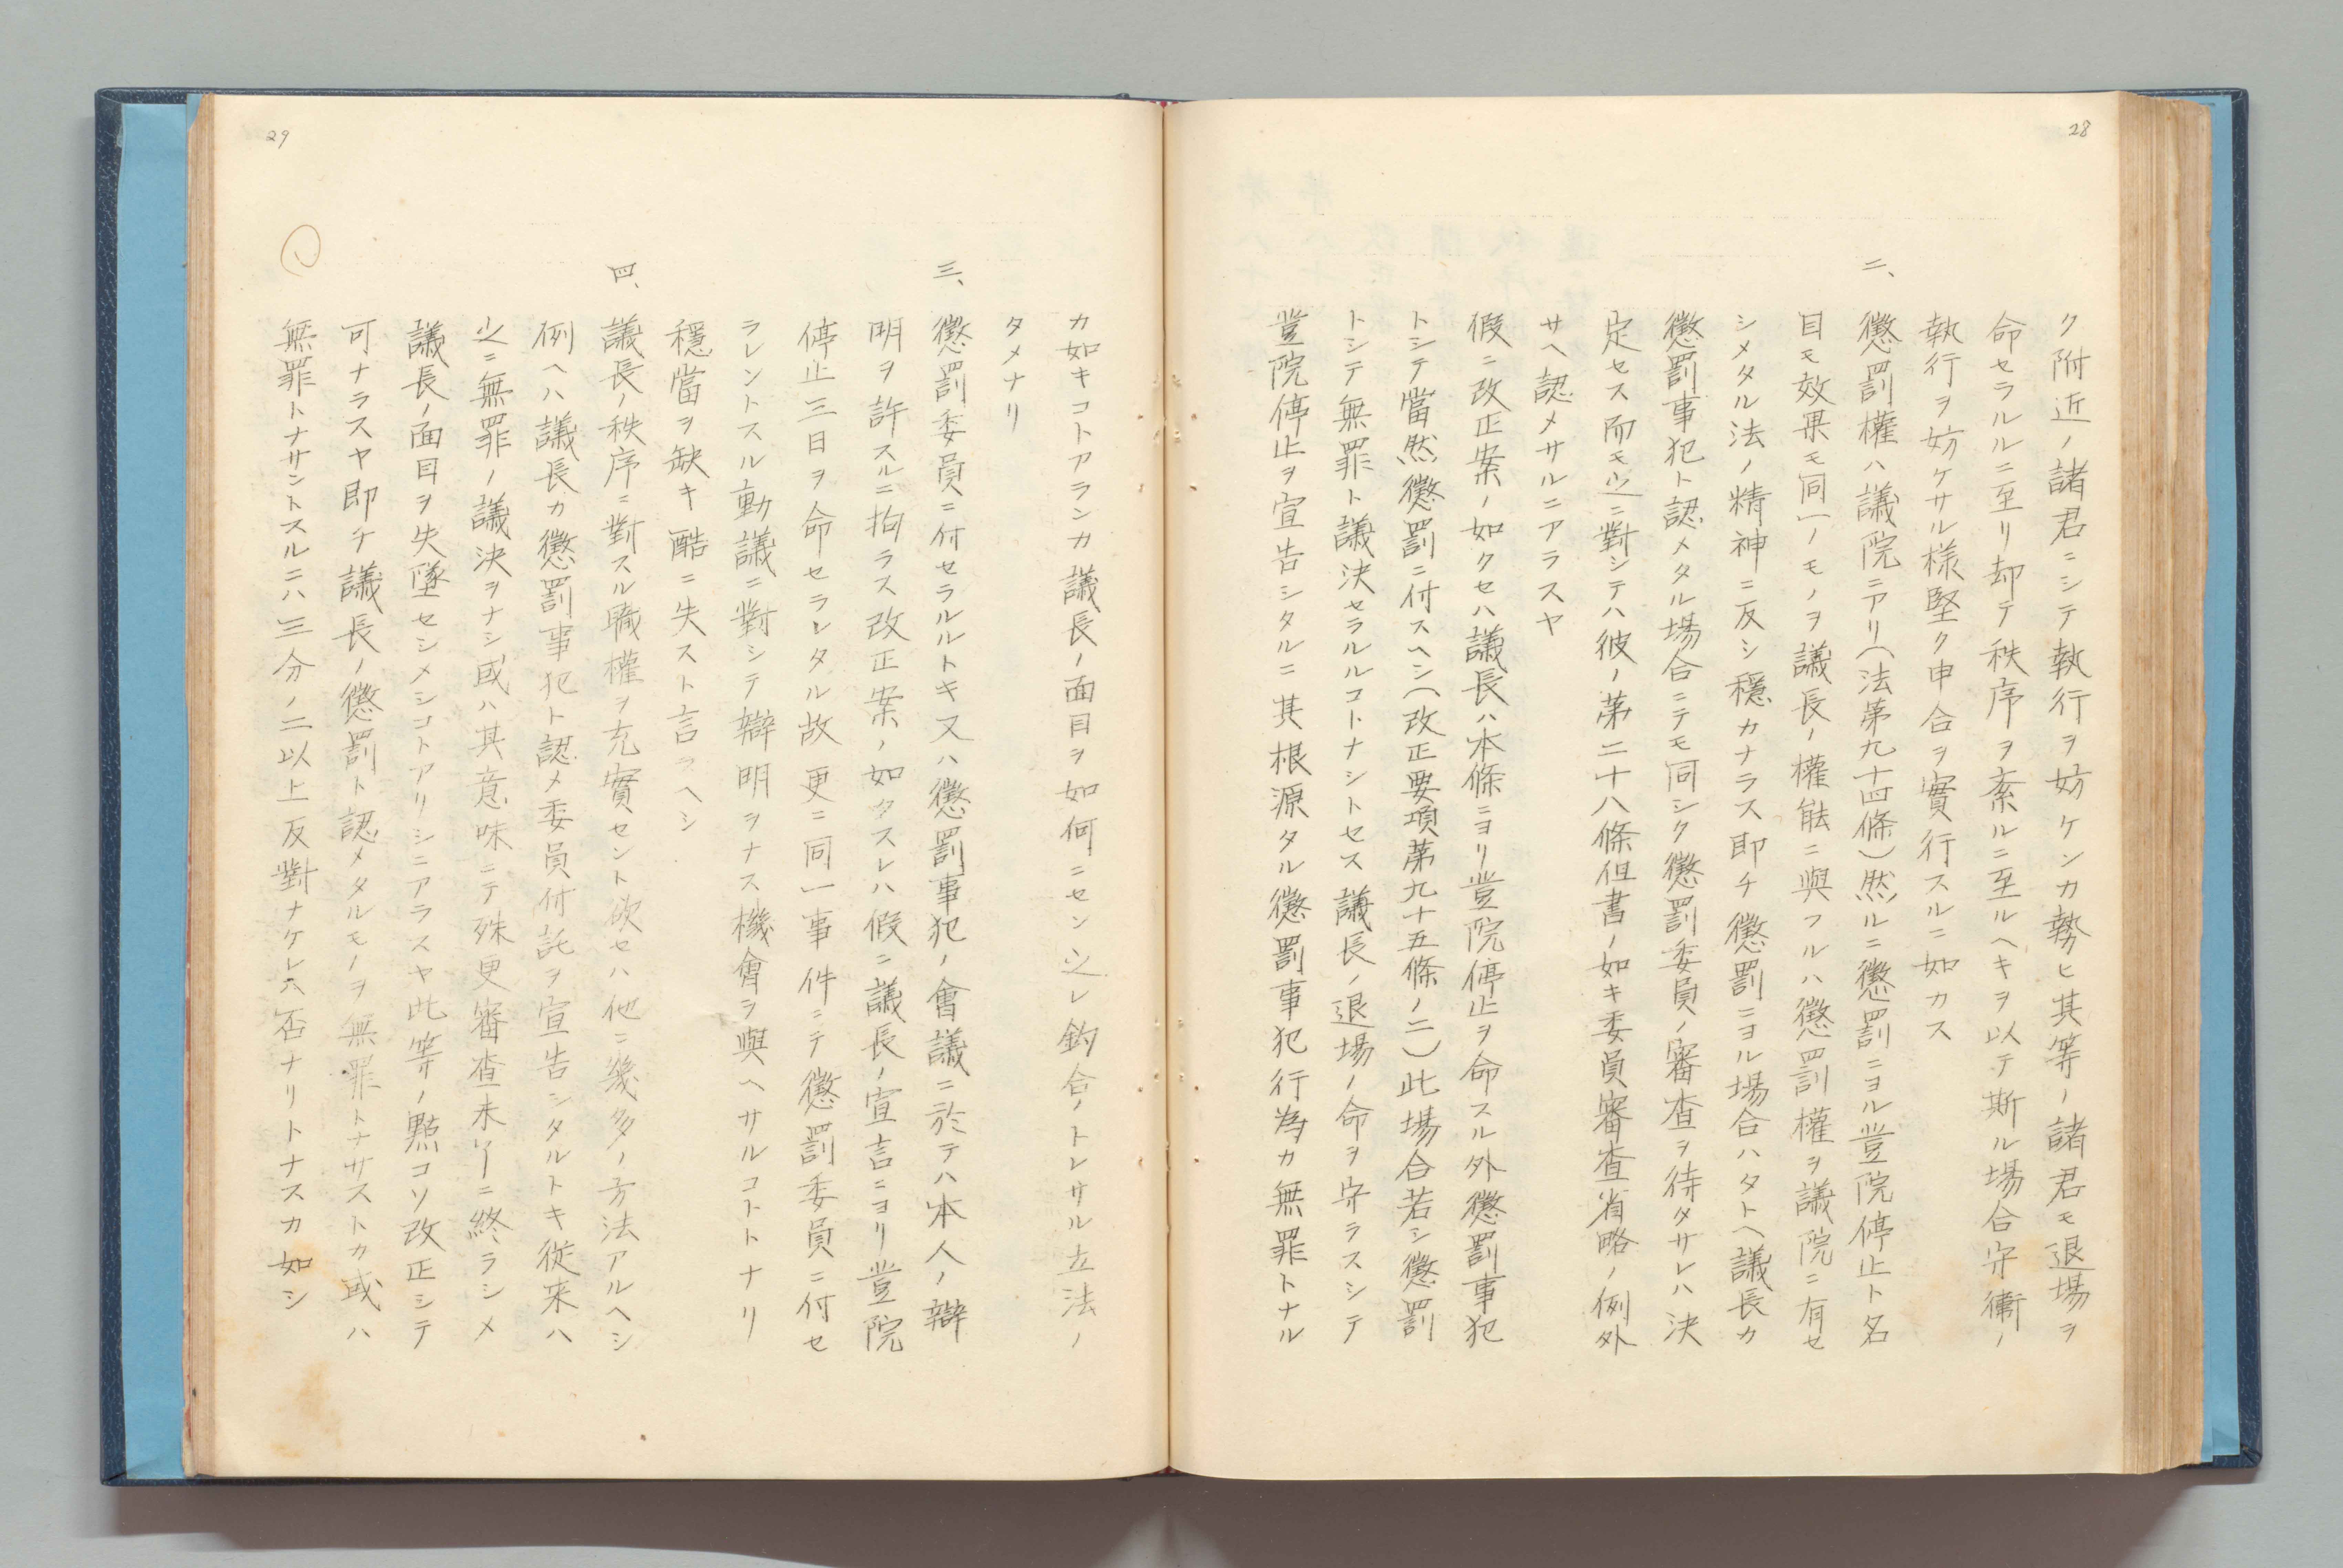 28
ク附近ノ諸君ニシテ執行ヲ妨ケンカ勢ヒ其等ノ諸君モ退場ヲ
命セラルルニ至リ却テ秩序ヲ紊ルニ至ルヘキヲ以テ斯ル場合守衛ノ
執行ヲ妨ケサル様堅ク申合ヲ實行スルニ如カス
二、懲罰權ハ議院ニアリ(法第九十四條)然ルニ懲罰ニヨル登院停止ト名
目モ效果モ同一ノモノヲ議長ノ權能ニ與フルハ懲罰權ヲ議院ニ有セ
シメタル法ノ精神ニ反シ穩カナラス即チ懲罰ニヨル場合ハタトヘ議長カ
懲罰事犯ト認メタル場合ニテモ同シク懲罰委員ノ審査ヲ待タサレハ決
定セス而モ之ニ對シテハ彼ノ第二十八條但書ノ如キ委員審査省略ノ例外
サヘ認メサルニアラスヤ
假ニ改正案ノ如クセハ議長ハ本條ニヨリ登院停止ヲ命スル外懲罰事犯
トシテ當然懲罰ニ付スヘシ(改正要項第九十五條ノ二)此場合若シ懲罰
トシテ無罪ト議決セラルルコトナシトセス議長ノ退場ノ命ヲ守ラスシテ
登院停止ヲ宣告シタルニ其根源タル懲罰事犯行為カ無罪トナル
29
カ如キコトアランカ議長ノ面目ヲ如何ニセン之レ釣合ノトレサル立法ノ
タメナリ
三、懲罰委員ニ付セラルルトキ又ハ懲罰事犯ノ會議ニ於テハ本人ノ辯
明ヲ許スルニ拘ラス改正案ノ如クスレハ假ニ議長ノ宣言ニヨリ登院
停止三日ヲ命セラレタル故更ニ同一事件ニテ懲罰委員ニ付セ
ラレントスル動議ニ對シテ辯明ヲナス機會ヲ與ヘサルコトトナリ
穩當ヲ缺キ酷ニ失スト言フヘシ
四、議長ノ秩序ニ對スル職權ヲ充實セント欲セハ他ニ幾多ノ方法アルヘシ
例ヘハ議長カ懲罰事犯ト認メ委員付託ヲ宣告シタルトキ従来ハ
之ニ無罪ノ議決ヲナシ或ハ其意味ニテ殊更審査未了ニ終ラシメ
議長ノ面目ヲ失墜セシメシコトアリシニアラスヤ此等ノ點コソ改正シテ
可ナラスヤ即チ議長ノ懲罰ト認メタルモノヲ無罪トナサストカ或ハ
無罪トナサントスルニハ三分ノ二以上反對ナケレハ否ナリトナスカ如シ